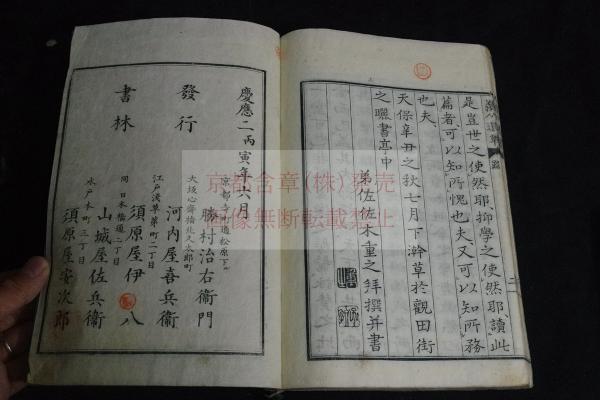 是豈世之使然耶、抑學之使然耶、讀此
篇者、可以知所愧也夫、又可以知所務
也夫、
天保辛丑之秋七月下澣草於觀田街
之曬書亭中
弟佐佐木重之拜撰并書
二
慶應二丙寅年六月
發行
書林
京都寺町通松原下ル
勝村治右衞門
大坂心齋橋北久太郎町
河内屋喜兵衞
江戸淺草茅町二丁目
須原屋伊八
同日本橋通二丁目
山城屋佐兵衞
水戸本町三丁目
須原屋安次郎
京都含章(株)発売
画像無断転載禁止